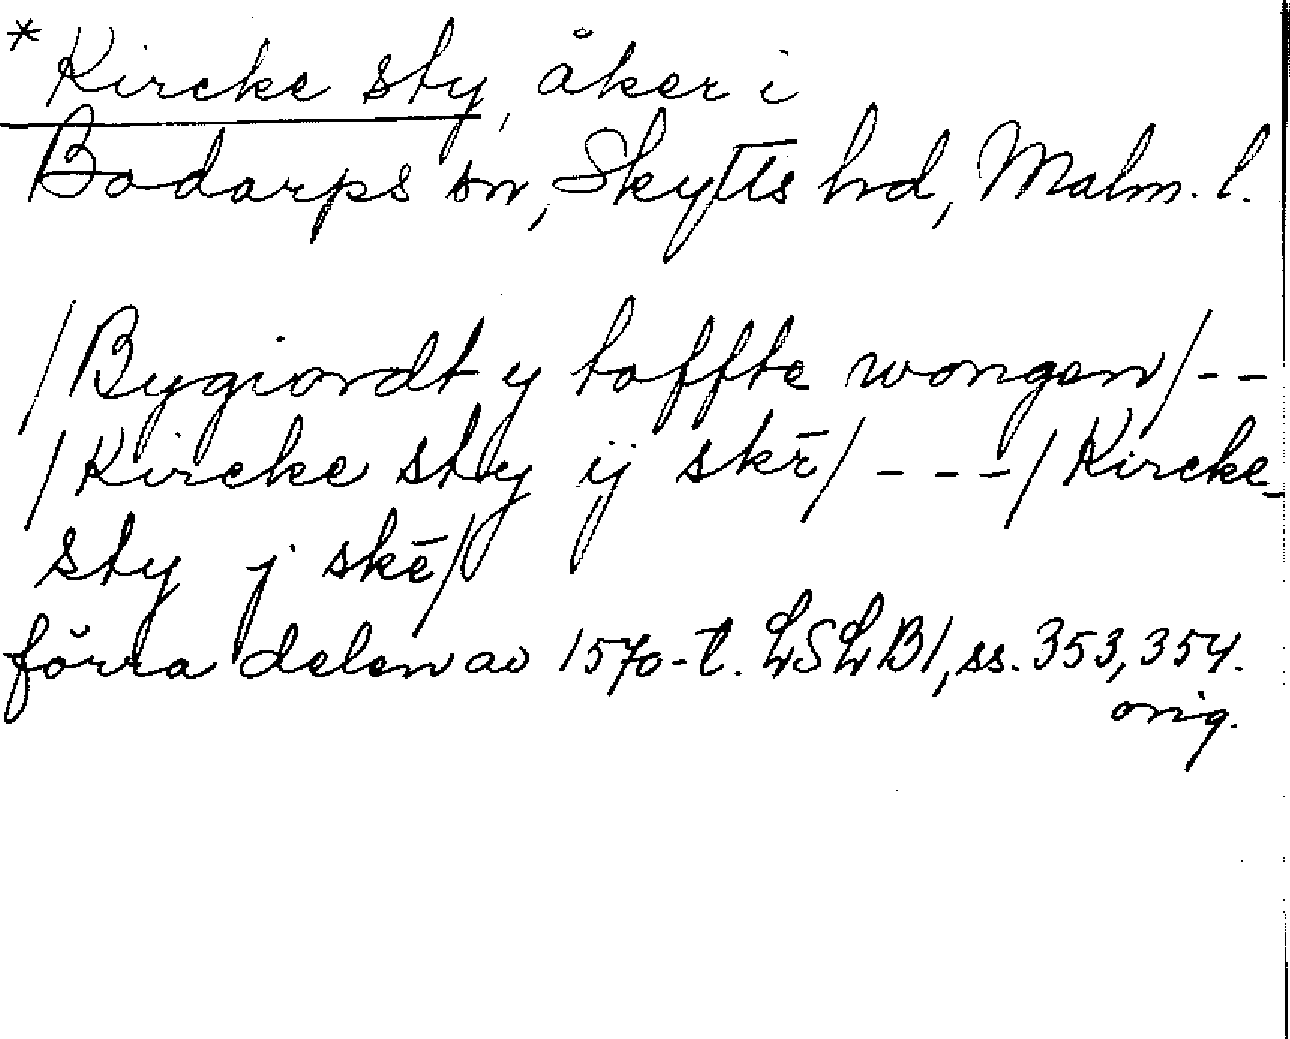 * Kircke sty, åker i
Bodarps sn, Skytts hd, Malm. l.
/Bygiordt y toffte wongen/--
/Kircke sty ij skē/---/Kircke-
sty j skē/
förra delen av 1570-t. LSLB1, ss. 353, 354.
orig.